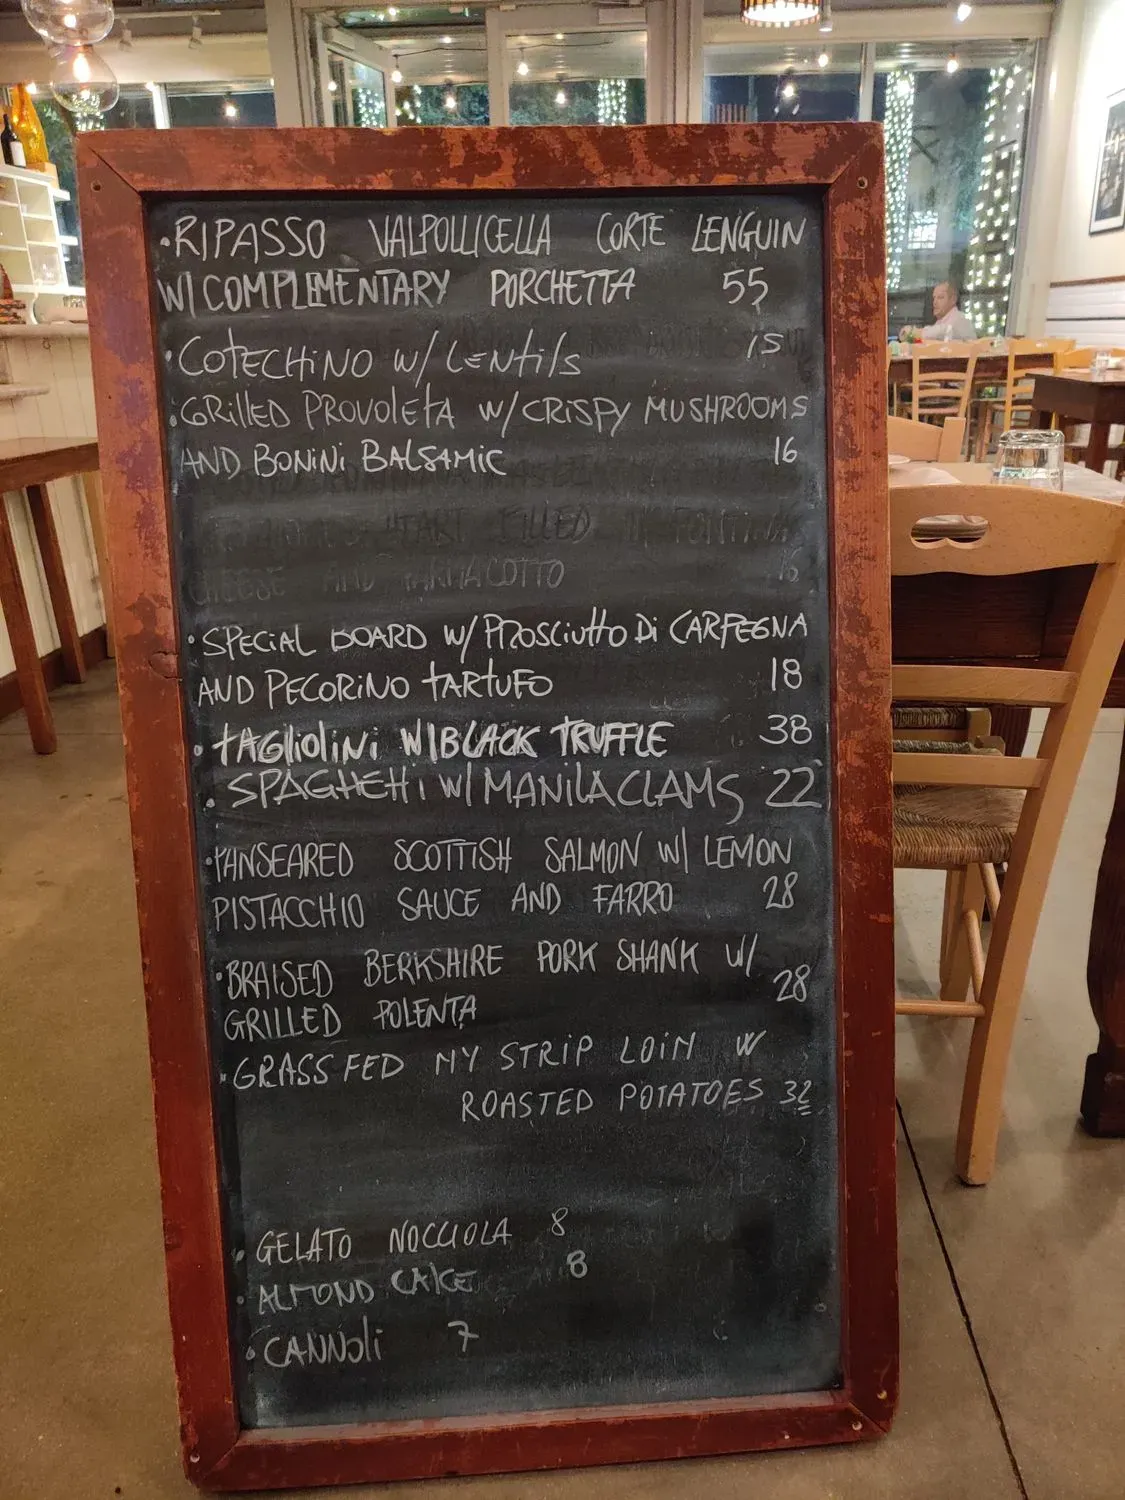 ·RIPASSO VALPOLLICELLA CORTE LENGUIN
W/COMPLIMENTARY PORCHETTA 55
·COTECHINO W/ LENTILS 15
·GRILLED PROVOLETA W/CRISPY MUSHROOMS
AND BONINI BALSAMIC 16
HEART FILLED FONTINA
CHEESE AND COTTO 16
·SPECIAL BOARD W/ PROSCIUTTO DI CARPEGNA
AND PECORINO TARTUFO 18
·TAGLIOLINI W/BLACK TRUFFLE 38
·SPAGHETTI W/ MANILA CLAMS 22
·PANSEARED SCOTTISH SALMON W/ LEMON
PISTACCHIO SAUCE AND FARRO 28
·BRAISED BERKSHIRE PORK SHANK W/
GRILLED POLENTA 28
·GRASS FED NY STRIP LOIN W
ROASTED POTATOES 32
·GELATO NOCCIOLA 8
·ALMOND CAKE 8
·CANNOLI 7